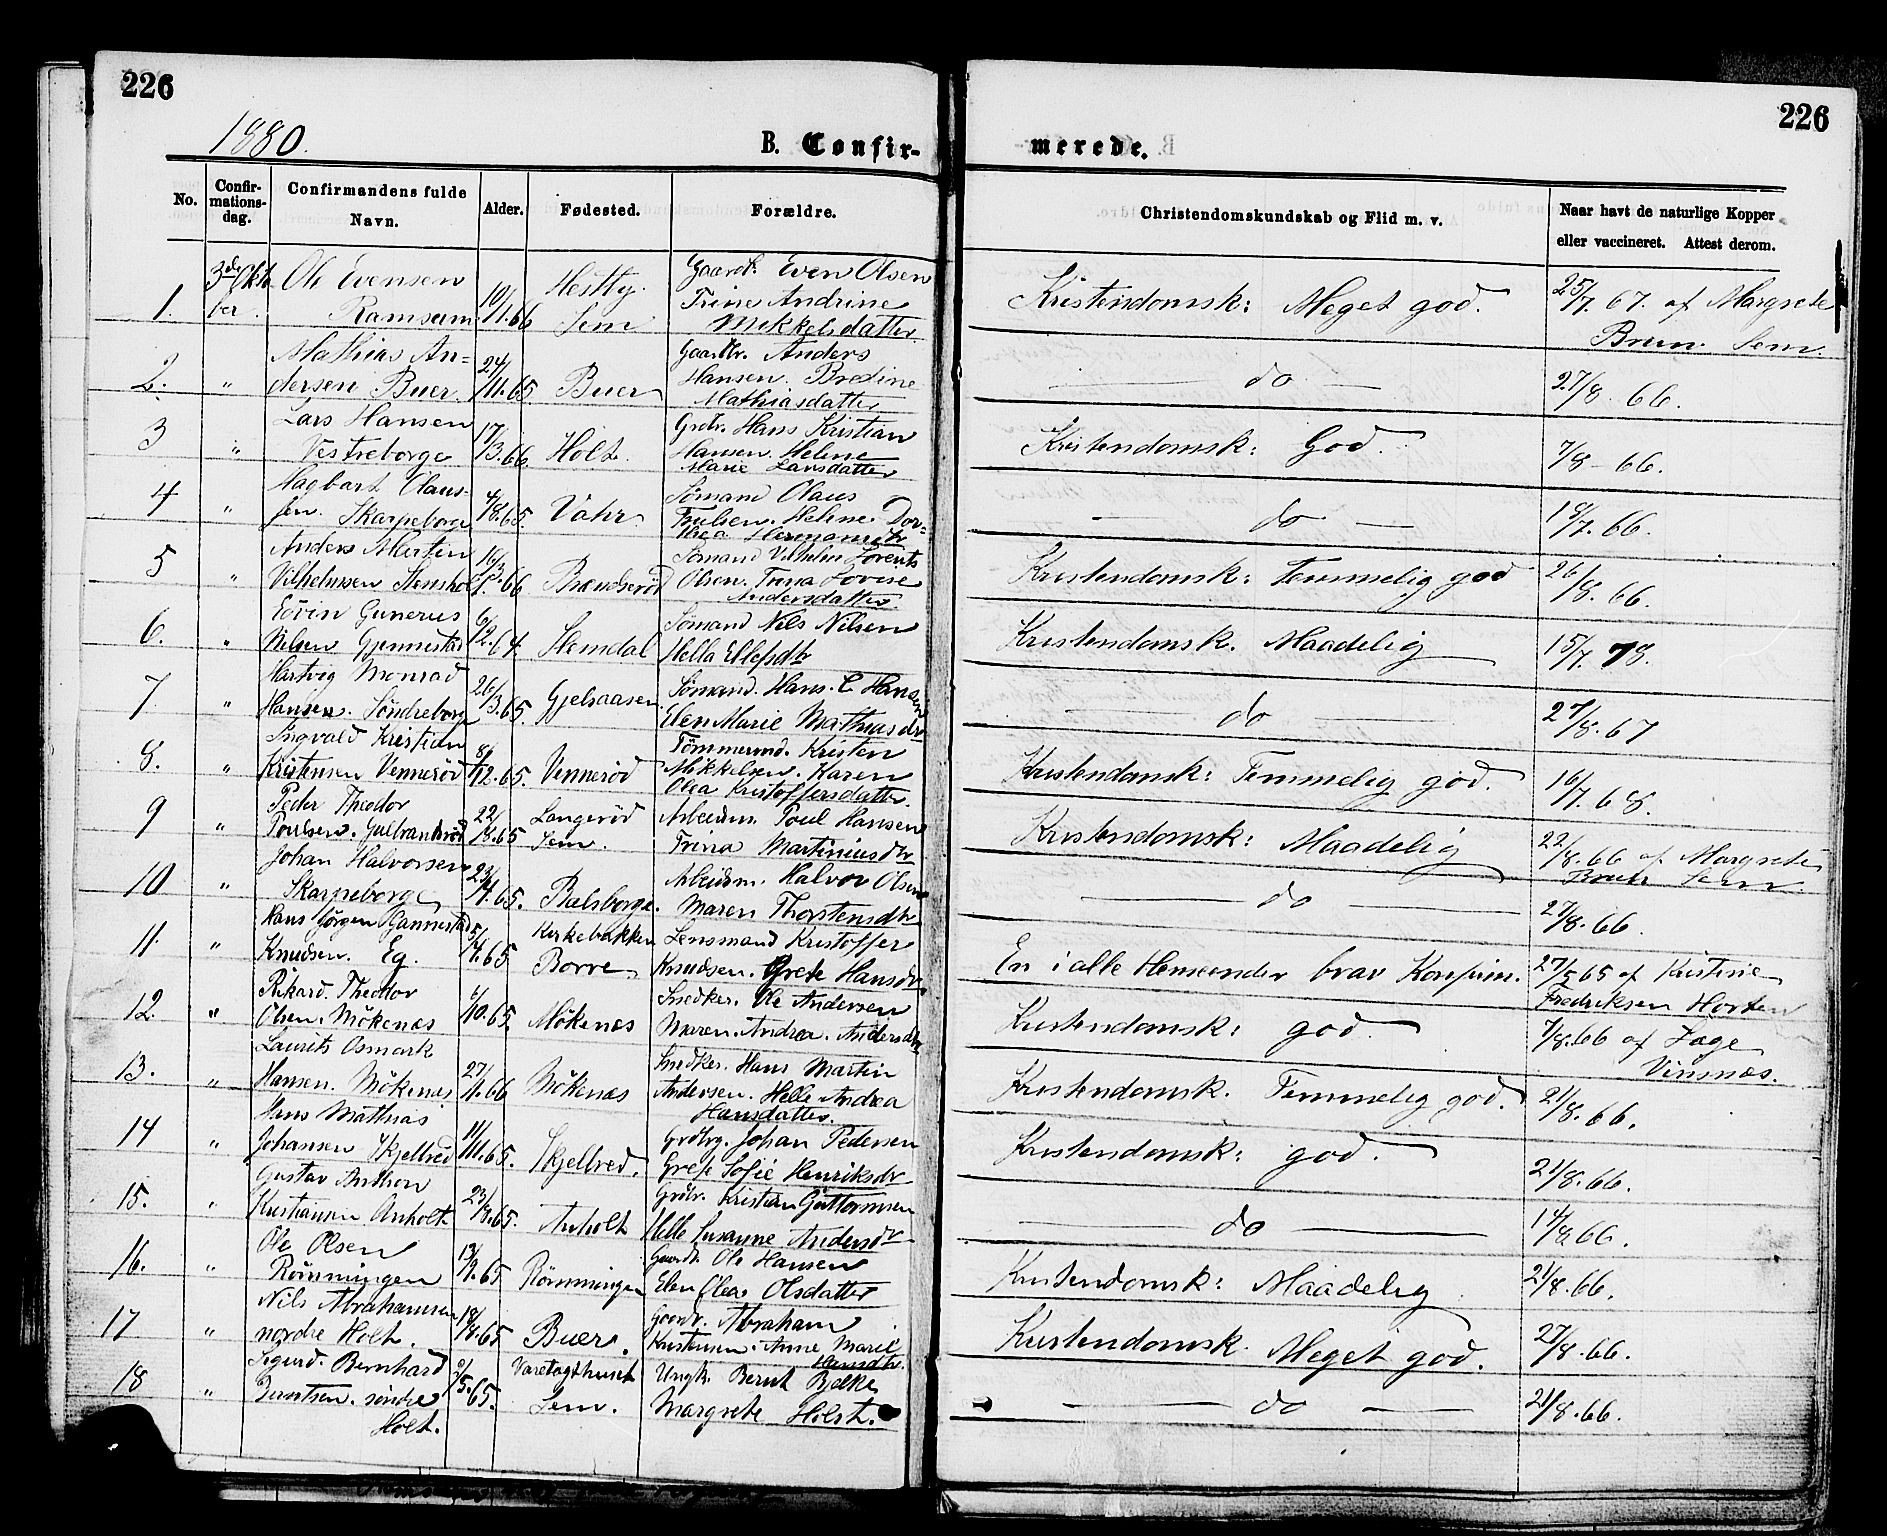 226
226
1880.
B. Confir-
merede.
No.
Confir-
mations-
dag.
Confirmandens fulde
Navn.
Alder.
Fødested.
Forældre.
Christendomskundskab og Flid m. v.
Naar havt de naturlige Kopper
eller vaccineret. Attest derom.
1.
3die Okto
ber.
Ole Evensen
Ramsum
10/1.66
Sem
Gaardb. Even Olsen
Trine Andrine
Mikkelsdatter
Kristendomsk: Meget god.
25/7.67. af Margrete
Bruun. Sem.
2.
"
Mathias An=
dersen Buer.
24/11.65
Buer
Gaardbr. Anders
Hansen. Bredine
Mathiasdatter
do
27/8.66.
3
"
Lars Hansen
Vestreborge
17/3.66
Holt.
Grdbr. Hans Kristian
Hansen. Helene
Marie Larsdatter
Kristendomsk: God.
7/8-66.
4
"
Hagbart Olaus-
sen. Skarpeborge
4/8.65.
Sömand Olaus
Helene Dor=
thea
do
19/7.66.
5
"
Anders Martin
Vilhelmsen
Sömand Vilhelm Lorents
Olsen. Trina Lovise
Andersdatter.
Kristendomsk: Temmelig god
26/8.66.
6.
"
Eövin Gunerus
Nilsen Gjennestad
6/12.64.
Hemdal
Sömand Nils Nilsen
Hella Ellefsdtr
Kristendomsk. Maadelig
15/7.78.
7
"
Hartvig Monrad
Hansen. Söndreborge
26/3.65.
Gjelsaasen
Sömand. Hans. C Hansen
Elen Marie Mathiasdtr
do
27/8.67
8.
"
Ingvald Kristian
Kristensen Venneröd
8/12.65.
Venneröd
Tömmermd. Kristen
Mikkelsen. Karen
Olea Kristoffersdatter.
Kristendomsk: Temmelig god.
16/7.68.
9
"
Peder Theodor
Poulsen. Gulbrandsröd
22/8.65
Langeröd
Sem.
Arbeidsm. Poul Hansen
Trina Martiniusdtr
Kristendomsk: Maadelig
22/8.66 af Margrete
Bruun Sem
10
"
Johan Halvorsen
Skarpeborge
23/4.65.
Bælsborge.
Arbeidsm. Halvor Olsen
Maren Thorstensdtr
do
27/8.66.
11.
"
Hans Jörgen Gannestad
Knudsen. Eg.
5/4.65
Kirkebakken
Borre
Lensmand Kristoffer
Knudsen. Grete Hansdtr.
En i alle Henseender brav Konfirm.
27/5 65 af Kristine
Fredriksen Horten
12.
"
Rikard. Theodor
Olsen. Mökenæs
6/10.65.
Mökenæs
Snedker. Ole Andersen
Maren. Andrea. Andersdtr
Kristendomsk: god.
7/8.66 af Lage
Vinsnæs.
13.
"
Laurits Osmark
Hansen. Mökenæs
27/1.66
Mökenæs
Snedker. Hans Martin
Andersen. Helle Andrea
Hansdatter.
Kristendomsk. Temmelig god.
21/8.66.
14
"
Hans Mathias
Johansen Skjellred
11/11.65.
Skjellred.
Grdbrg. Johan Pedersen
Grete Sofie Henriksdtr
Kristendomsk: god.
21/8.66.
15.
"
Gustav Anthon
Kristiansen Anholt
23/8.65.
Anholt
Grdbr. Kristian Guttormsen
Helle Susanne Andersdtr
do
14/8.66.
16.
"
Ole Olsen
Römmingen
13/9.65
Römmingen
Gaardb. Ole Hansen
Elen Olea Olsdatter
Kristendomsk: Maadelig
21/8.66.
17
"
Nils Abrahamsen
nordre Holt.
18/8.65
Buer.
Gaardbr. Abraham
Kristensen. Anne Marie
Hansdtr.
Kristendomsk. Meget god.
27/8.66.
18
"
Sigurd. Bernhard
Berntsen. söndre
Holt.
9/5.65.
Varetagthuset
Sem.
Ungk. Bernt Bække
Margrete Holst.
do
21/8.66.